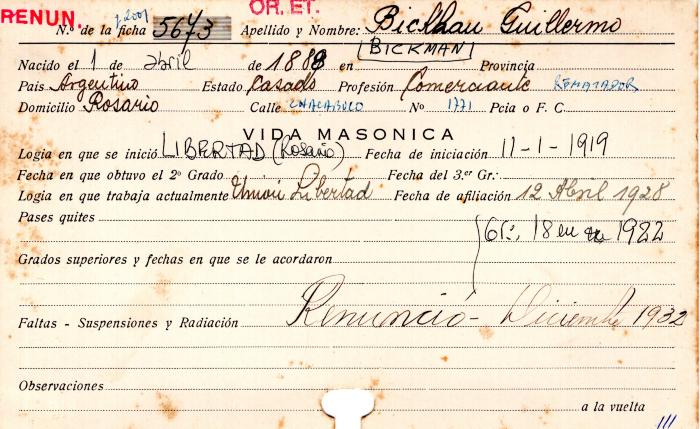 RENUN. OR. ET.
N.º de la ficha 5673 Apellido y Nombre: Bickhau Guillermo
BICKMAN
Nacido el 1 de abril de 1888 en Provincia
Pais Argentino Estado Casado Profesión Comerciante REMATADOR
Domicilio Rosario Calle CHACABUCO Nº 1771 Pcia o F. C.
VIDA MASONICA
Logia en que se inició LIBERTAD (Rosario) Fecha de iniciación 11-1-1919
Fecha en que obtuvo el 2º Grado Fecha del 3.er Gr.:
Logia en que trabaja actualmente Unión Libertad Fecha de afiliación 12 Abril 1928
Pases quites
6º:, 18 en 1922
Grados superiores y fechas en que se le acordaron
Faltas - Suspensiones y Radiación Renunció - Diciembre 1932
Observaciones
a la vuelta